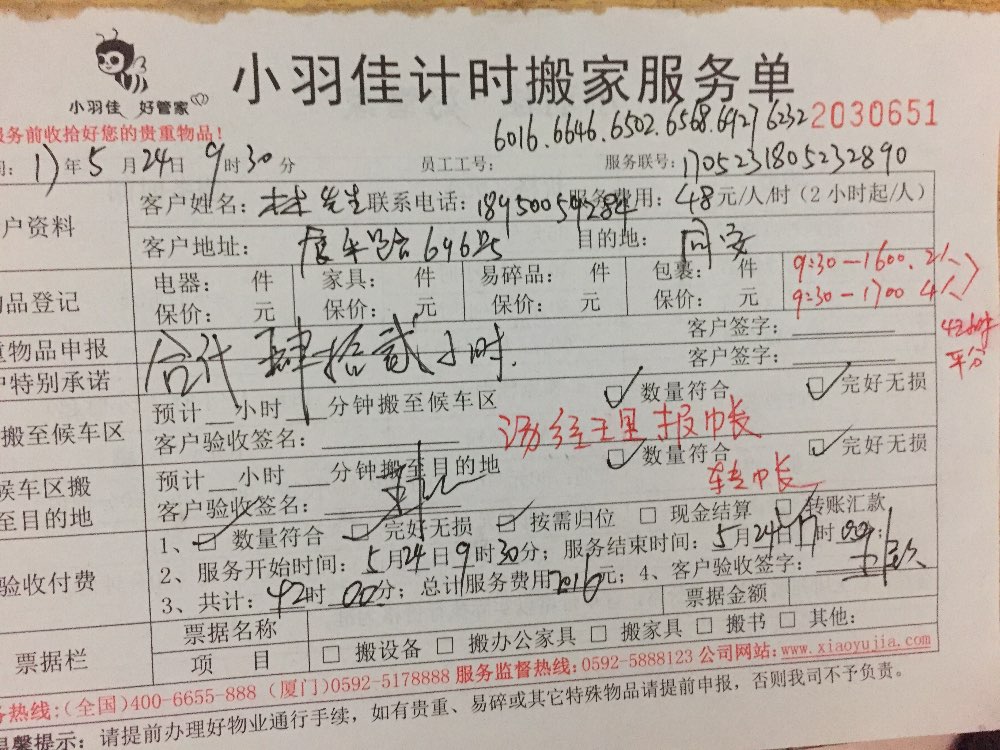 小羽佳计时搬家服务单
小羽佳 好管家
服务前收拾好您的贵重物品!
6016.6646.6502.6568.6927 6232 2030651
间: 17年5月24日 9时30分 员工工号: 服务联号: 1705231805232890
户资料 客户姓名: 林先生 联系电话: 18950059284 服务费用: 48元/人/时(2小时起/人)
客户地址: 694号 目的地: 同安
物品登记 电器: 件 家具: 件 易碎品: 件 包裹: 件 9:30—1600. 2人
保价: 元 保价: 元 保价: 元 保价: 元 9:30—1700 4人
42小时
平分
重物品申报 客户签字:
合计 肆拾贰小时.
户特别承诺 客户签字:
搬至候车区 预计 小时 分钟搬至候车区 数量符合 完好无损
客户验收签名: 汤经理报帐
候车区搬至目的地 预计 小时 分钟搬至目的地 数量符合 完好无损
客户验收签名: 转帐
验收付费 1、 数量符合 完好无损 按需归位 现金结算 转账汇款
2、服务开始时间: 5月24日9时30分; 服务结束时间: 5月24日17时00分;
3、共计: 42时00分; 总计服务费用2016元; 4、客户验收签字:
票据栏 票据名称 票据金额
项 目 搬设备 搬办公家具 搬家具 搬书 其他:
务热线:(全国)400-6655-888 (厦门)0592-5178888 服务监督热线:0592-5888123 公司网站:www.xiaoyujia.com
温馨提示: 请提前办理好物业通行手续,如有贵重、易碎或其它特殊物品请提前申报,否则我司不予负责。